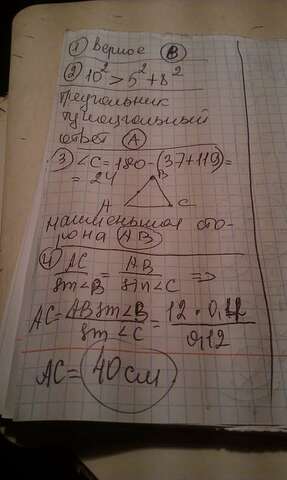 ① Верное Ⓑ
② 10² > 5² + 8²
треугольник
тупоугольный
ответ Ⓐ
③ ∠C = 180 - (37 + 119) =
= 24
B
A C
наименьшая сто-
рона AB
④ AC / sin∠B = AB / sin∠C =>
AC = AB sin∠B / sin∠C = 12 · 0,4 / 0,12
AC = 40 см